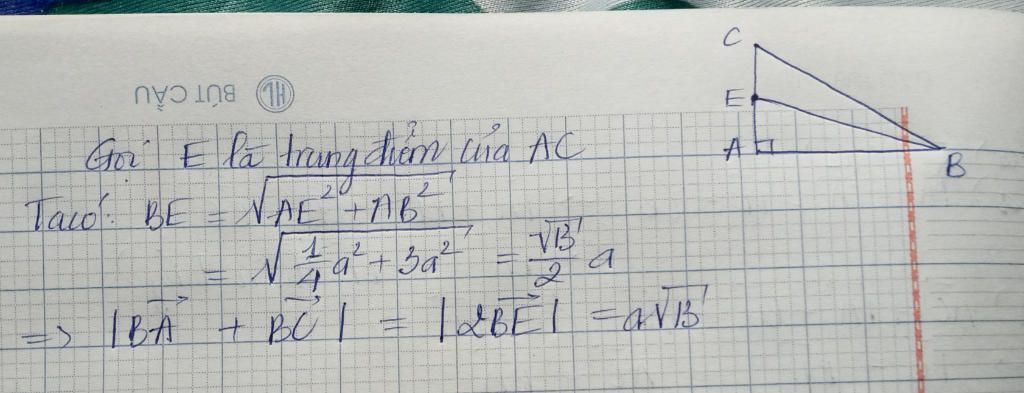 C
E
A
B
BÚT CẦU
HL
Gọi E là trung điểm của AC
Ta có: BE = √(AE² + AB²)
= √(1/4 a² + 3a²) = √13/2 a
=> |BA→ + BC→| = |2BE→| = a√13